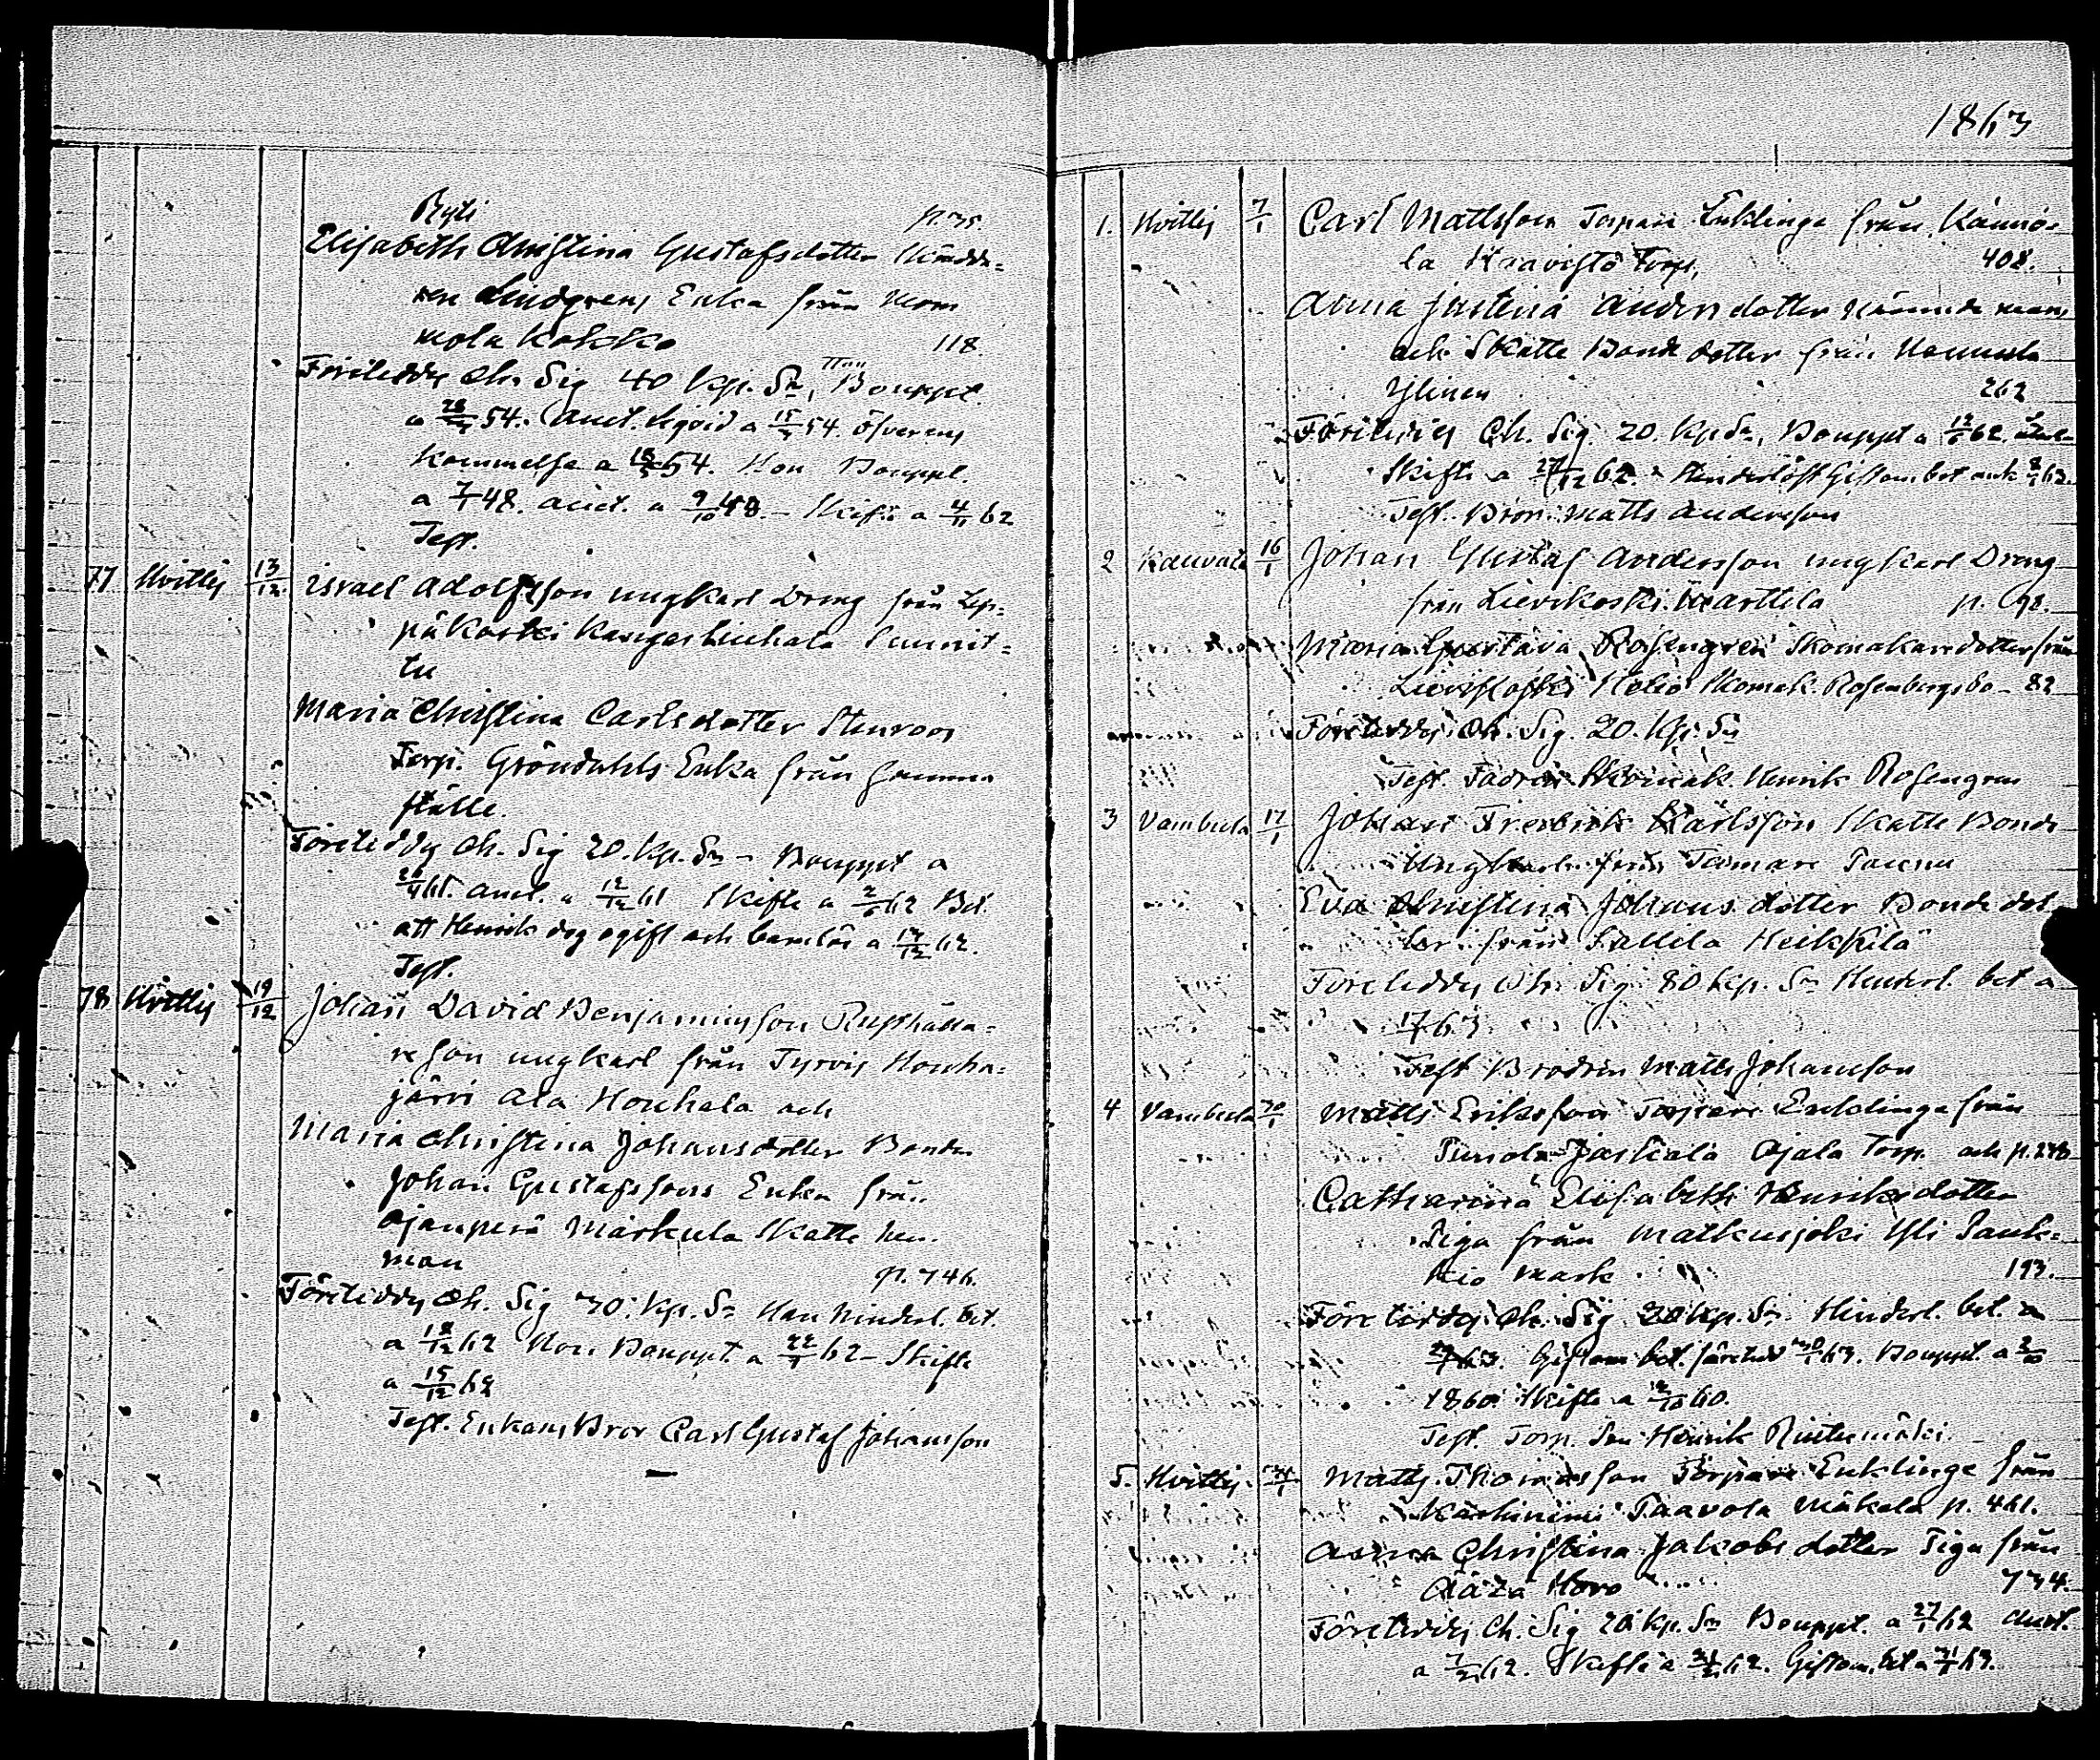 Ryti p. 35.
Elisabeth Christina Gustafsdotter
Lindgrens Enka från Mom
mola Kokko 118.
Företeddes Ch. Sig 40 kp. Sr, Han Bouppt.
a 54. Auct. a 15 54. öfverens
kommelse a 54. Hon Bouppt.
a 7 48. auct. a 9/10 48. – Skifte a 4/11 62
Test.
77 Hvittis 13/12 Israel Adolfsson ungkarl Dreng från Lep=
päkoski Kangas Linhala Sunnit=
tu
Maria Christina Carlsdotter Stenroos
Torp. Gröndahls Enka från samma
ställe.
Företeddes Ch. Sig 20. kp. Sr – Bouppt a
26/4 61. auct. a 12/12 61 Skifte a 62 Bet.
att Henrik dog ogift och barnlös a 62.
Test.
78 Hvittis 19/12 Johan David Benjaminsson Rusthålla=
reson ungkarl från Tyrvis Houha=
järvi Ala Houhala och
Maria Christina Johansdotter Bonden
Johan Gustafssons Enka från
Ojanperä Markula Skatte hem
man p. 746.
Företeddes Ch. Sig 30. kp. Sr Han hinderl. bet.
a 18/12 62 Hon Bouppt. a 22/9 62 – Skifte
a 15/12 62
Test. Enkans Bror Carl Gustaf Johansson
1863
1. Hvittis 7/1 Carl Mattsson Torpare Enklinge från Kännö=
la Kraavisto Torp, 408.
Anna Justina Andersdotter Nämndemans
och Skatte Bonde dotter från Nannula
Ylinen 262
Företeddes Ch. Sig. 20. kp Sr, Bouppt a 12 62.
Skifte a 27/12 62. Hinderlöst Giftom. bet och 63.
Test. Bror. Matts Andersson
2 Kauvatz 16/1 Johan Gustaf Andersson ungkarl Dreng
från Lievikoski Marttila p. 98.
Maria Gustava Rosengren Skomakaredotter från
Lievikoski Skomak. Rosenbergsbo – 82
Företeddes Ch. Sig. 20. Kp. Sr
Test. Fadren Skomak. Henrik Rosengren
3 Vambula 17/1 Johan Fredrik Karlsson Skatte Bonde
Ungkarl från Tamare Paunu
Eva Christina Johansdotter Bonde dot
ter från Sallila Heikkilä
Företeddes Ch. Sig 80 kp. Sr Hinderl. bet a
17/1 63.
Test Brodren Matts Johansson
4 Vambula Matts Eriksson Torpare Enklinge från
Jaskala Ojala Torp. och p. 248
Catharina Elisabeth Henriksdotter
Piga från Matkusjoki Yli Sauk=
kio mark 193.
Företeddes Ch. Sig 20 kp. Sr. Hinderl. bet. a
63. Giftom bet. företed 63. Bouppt. a
1860 Skifte a 60.
Test. Torp. Son Henrik Rintamäki.
5. Hvittis. Matts Thomasson Torpare Enklinge från
Karhiniemi Paavola Mäkelä p. 461.
Anna Christina Jakobsdotter Piga från
Horo 734.
Företeddes Ch. Sig 20 kp. Sr Bouppt. a 27 62 Auct.
a 62. Skifte a 62. Giftom. bet a 63.